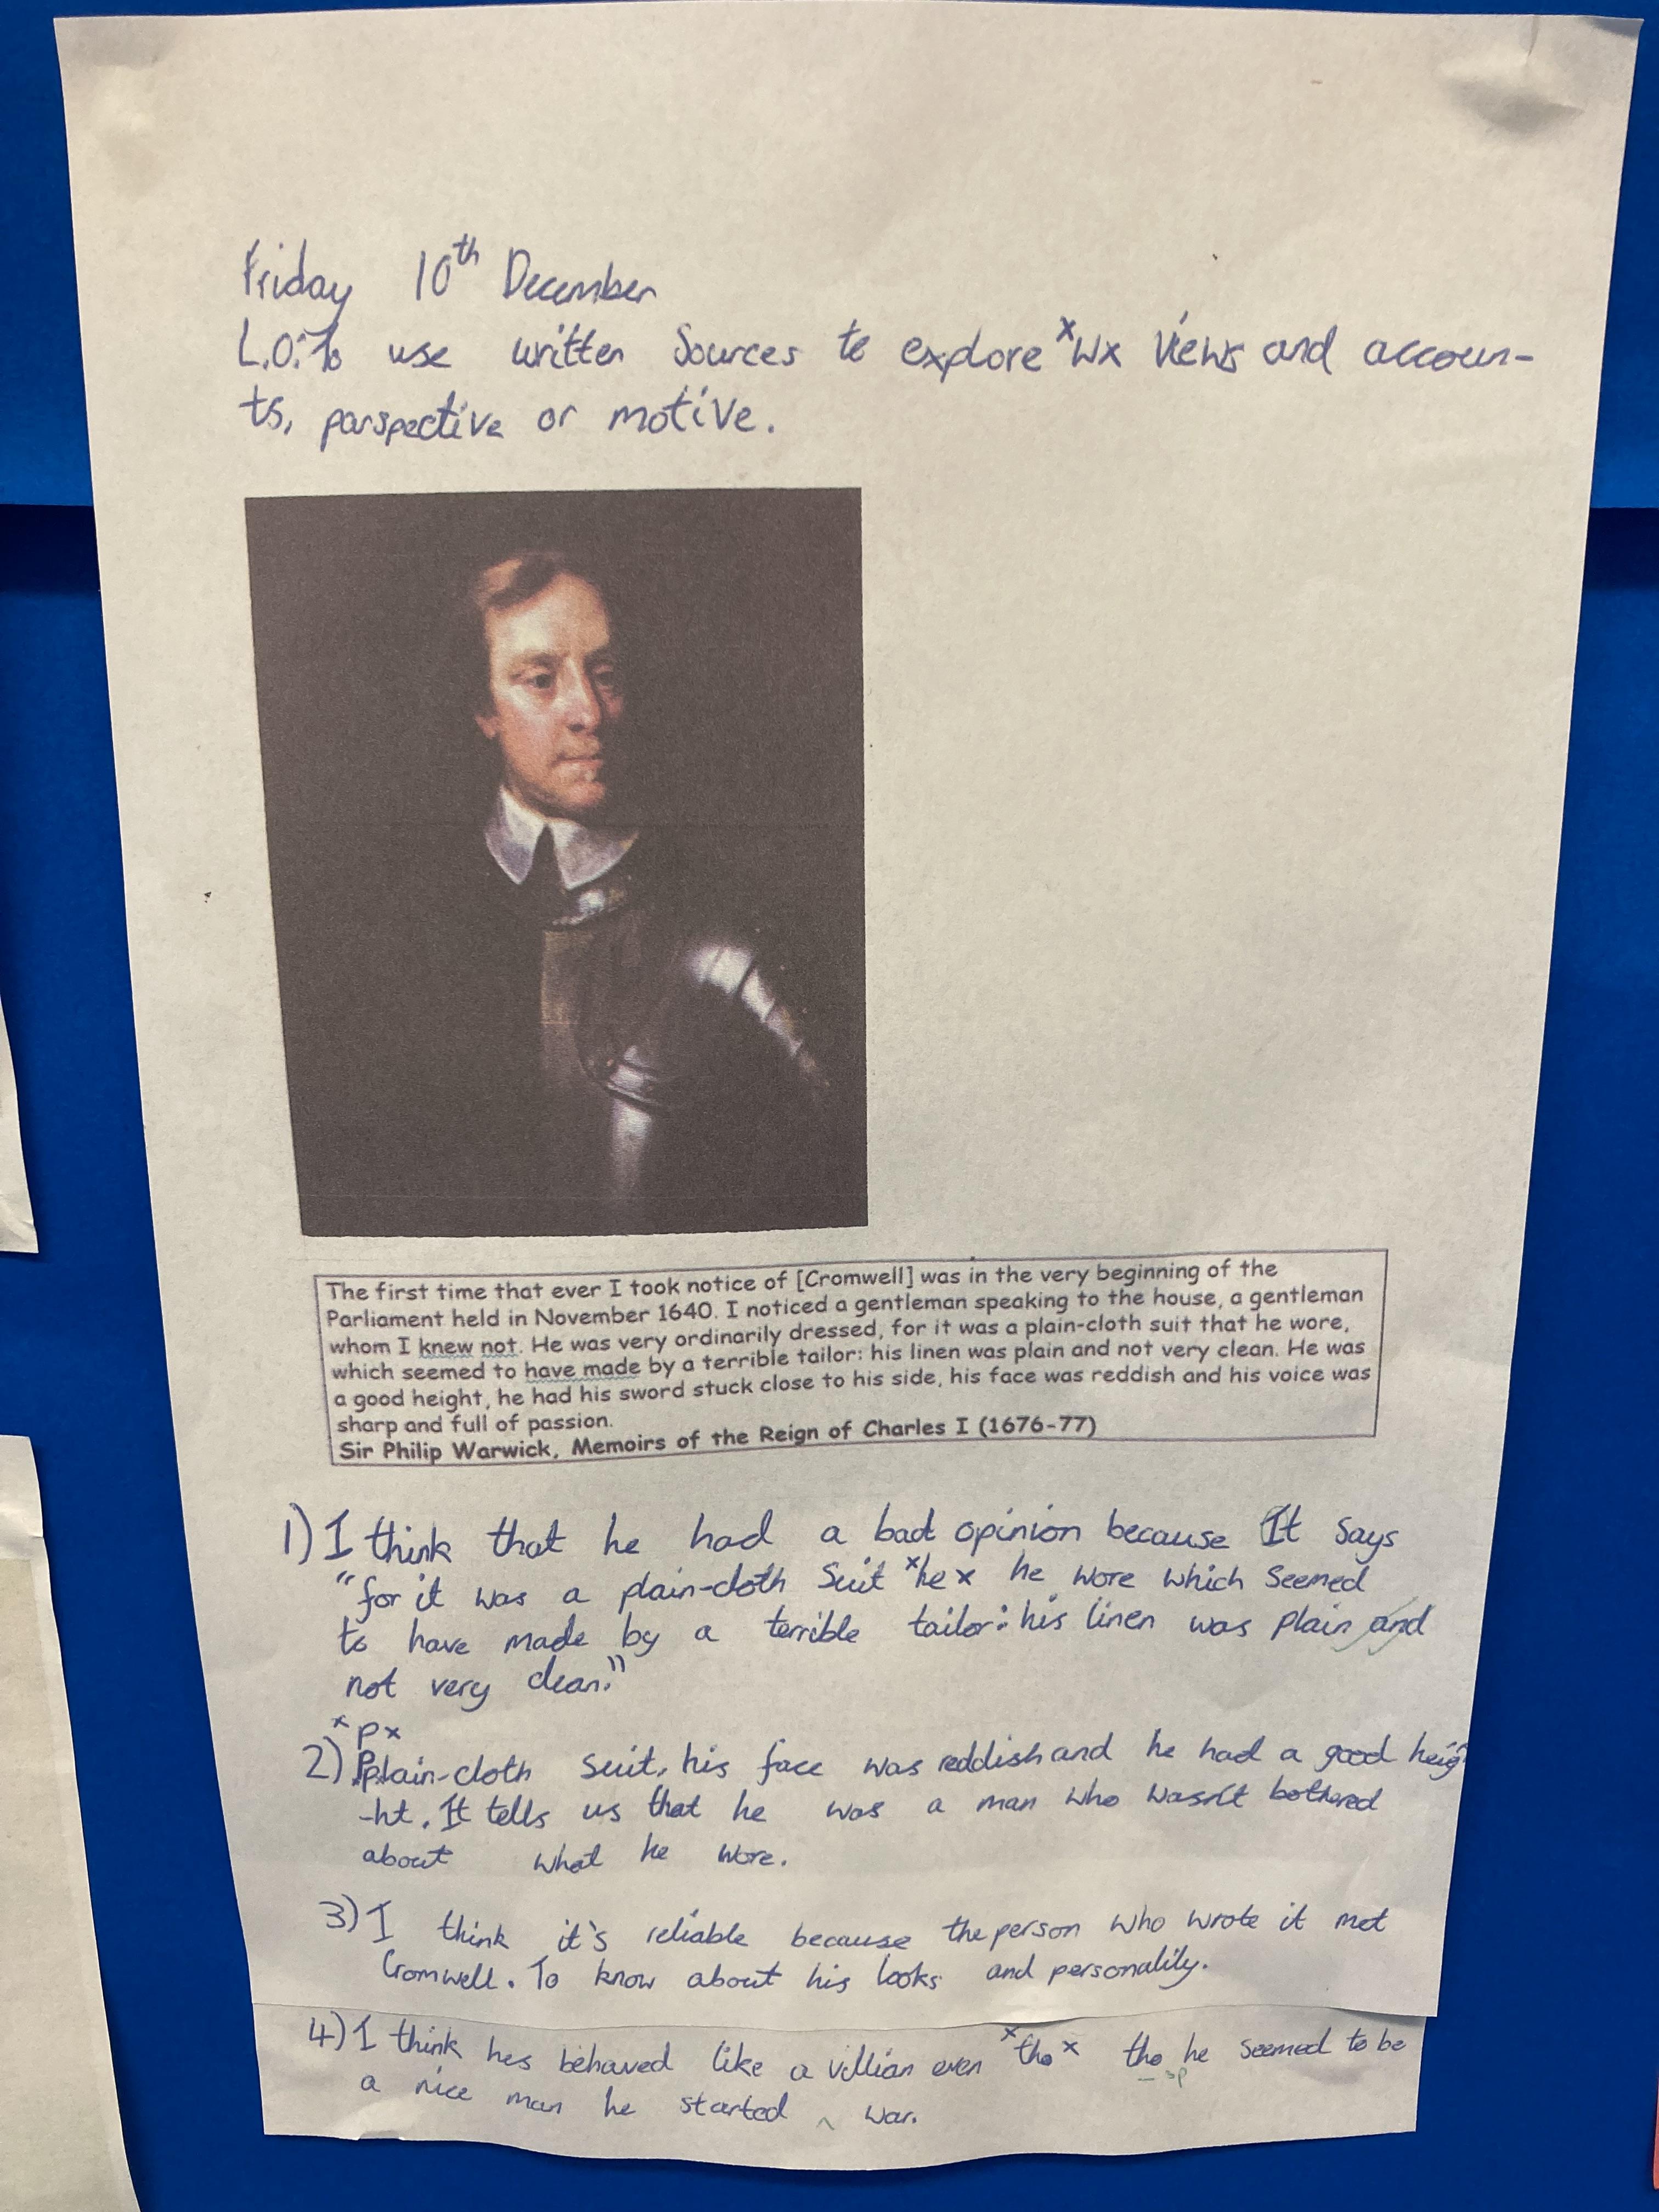 Friday 10th December
L.O: To use written Sources to explore xwx views and accoun-
ts, parspective or motive.
The first time that ever I took notice of [Cromwell] was in the very beginning of the
Parliament held in November 1640. I noticed a gentleman speaking to the house, a gentleman
whom I knew not. He was very ordinarily dressed, for it was a plain-cloth suit that he wore,
which seemed to have made by a terrible tailor: his linen was plain and not very clean. He was
a good height, he had his sword stuck close to his side, his face was reddish and his voice was
sharp and full of passion.
Sir Philip Warwick, Memoirs of the Reign of Charles I (1676-77)
1) I think that he had a bad opinion because It says
"for it was a plain-cloth Suit xhex he wore which seemed
to have made by a terrible tailor: his linen was plain and
not very clean."
xpx
2) Pplain-cloth suit, his face was reddish and he had a good heig
-ht. It tells us that he was a man who wasn't bothered
about what he wore.
3) I think it's reliable because the person who wrote it met
Cromwell. To know about his looks and personality.
4) I think hes behaved like a villian even xthox tho he seemed to be
sp
a nice man he started ^ war.